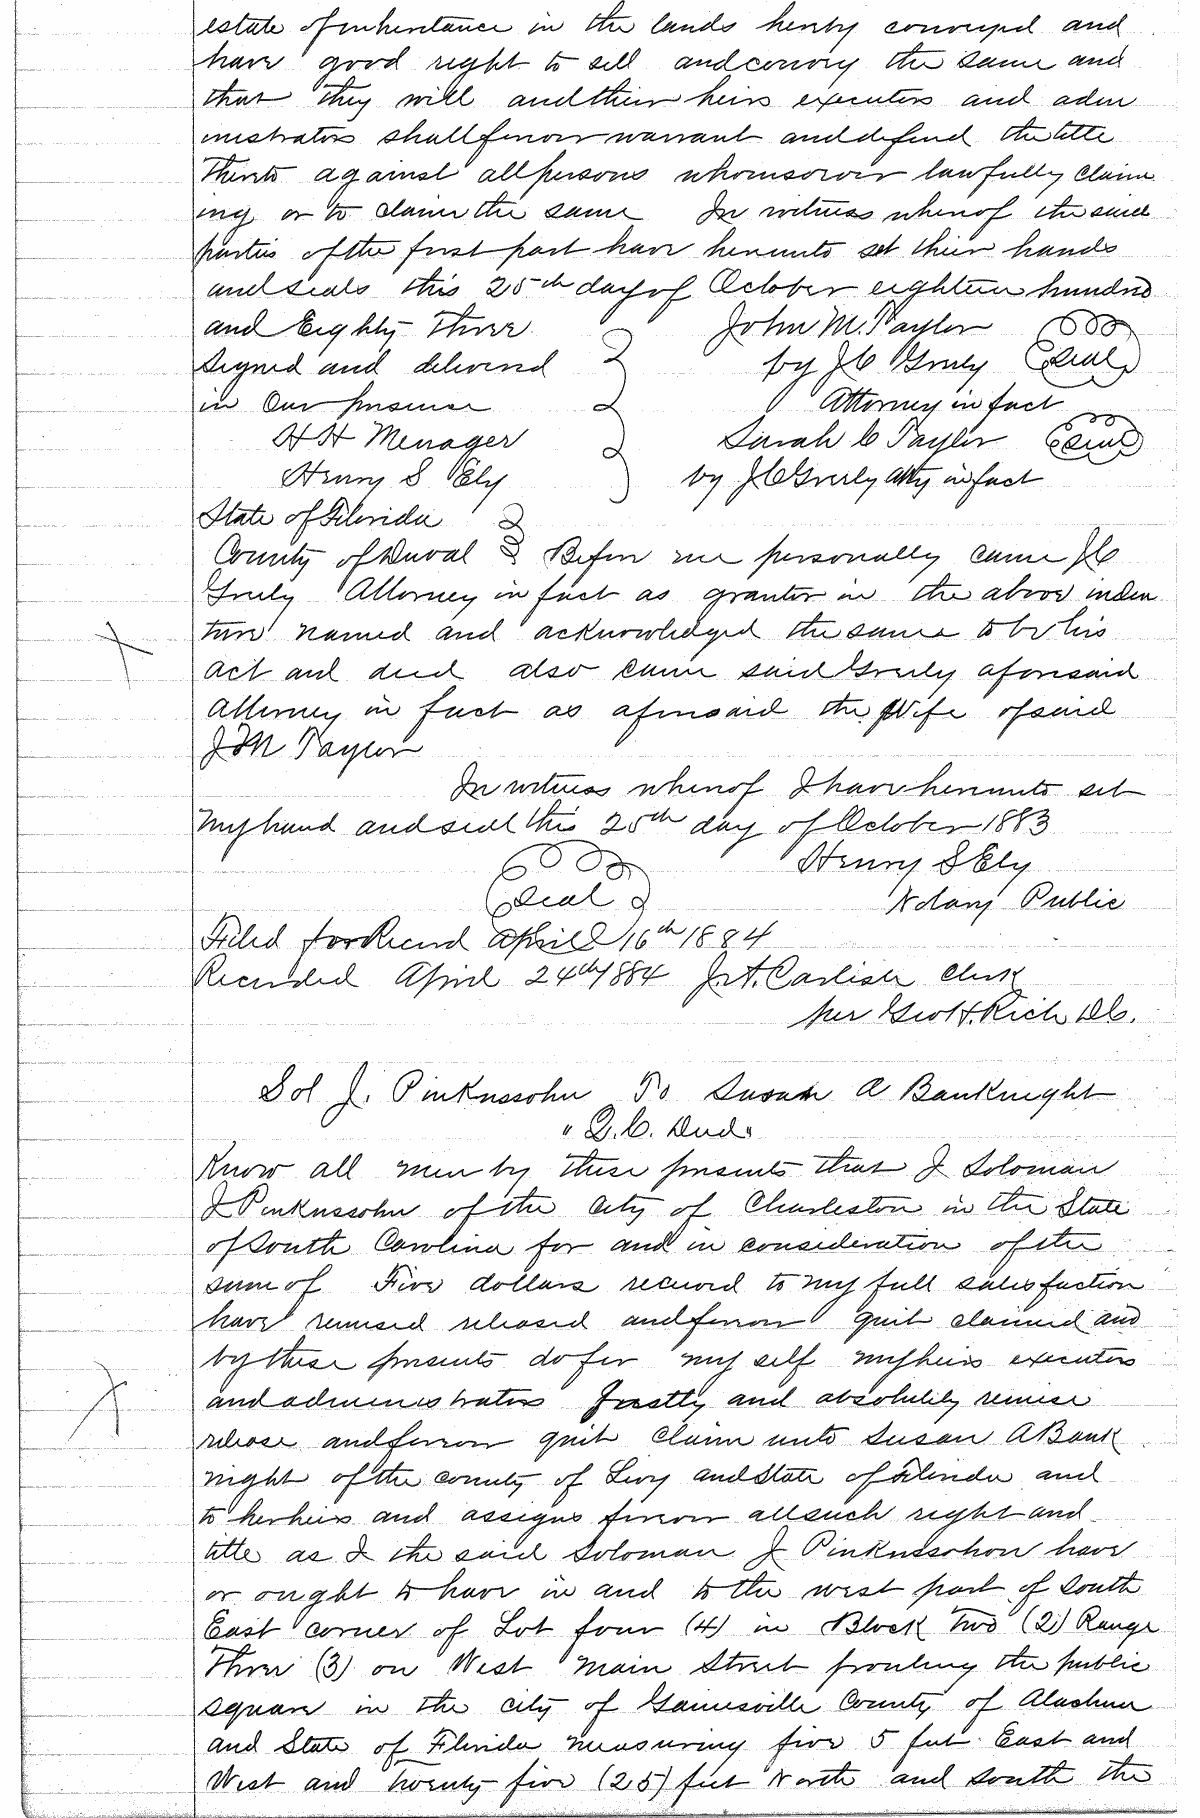 estate of inheritance in the lands hereby conveyed and
have good right to sell and convey the same and
that they will and their heirs executors and adm
inistrators shall forever warrant and defend the title
thereto against all persons whomsoever lawfully claim
ing or to claim the same In witness whereof the said
parties of the first part have hereunto set their hands
and seals this 25th day of October eighteen hundred
and Eighty Three John M. Taylor
Signed and delivered by J C Greely Seal
in Our presence Attorney in fact
H H Menager Sarah C Taylor Seal
Henry S Ely by J C Greely Atty in fact
State of Florida
County of Duval Before me personally came J C
Greely Attorney in fact as grantor in the above inden
ture named and acknowledged the same to be his
act and deed also came said Greely aforesaid
Attorney in fact as aforesaid the Wife of said
J M Taylor
In witness whereof I have hereunto set
my hand and seal this 25th day of October 1883
Henry S Ely
Seal Notary Public
Filed for Record April 16th 1884
Recorded April 24th 1884 J. A. Carlisle Clerk
per Geo H. Rich D.C.
Sol J. Pinkussohn To Susan A Banknight
" Q. C. Deed "
Know all men by these presents that I Soloman
J Pinkussohn of the City of Charleston in the State
of South Carolina for and in consideration of the
sum of Five dollars received to my full satisfaction
have remised released and forever quit claimed and
by these presents do for my self my heirs executors
and administrators Justly and absolutely remise
release and forever quit claim unto Susan A Bank
night of the county of Levy and State of Florida and
to her heirs and assigns forever all such right and
title as I the said Soloman J Pinkussohon have
or ought to have in and to the west part of South
East corner of Lot four (4) in Block Two (2) Range
Three (3) on West Main Street fronting the public
square in the city of Gainesville County of Alachua
and State of Florida measuring five 5 feet East and
West and twenty five (25) feet North and South the